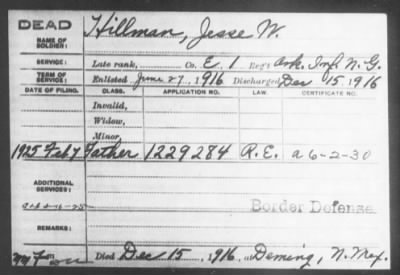 DEAD
NAME OF SOLDIER: Hillman, Jesse W.
SERVICE: Late rank, Co. E. 1 Reg't Ark. Inf. N.G.
TERM OF SERVICE: Enlisted June 27, 1916 Discharged Dec 15 1916
DATE OF FILING. CLASS. APPLICATION NO. LAW. CERTIFICATE NO.
Invalid,
Widow,
Minor,
1925 Feb 7 Father 1229284 R.E. a 6-2-30
ADDITIONAL SERVICES:
Border Defense
REMARKS:
Died Dec 15, 1916, at Deming, N. Mex.